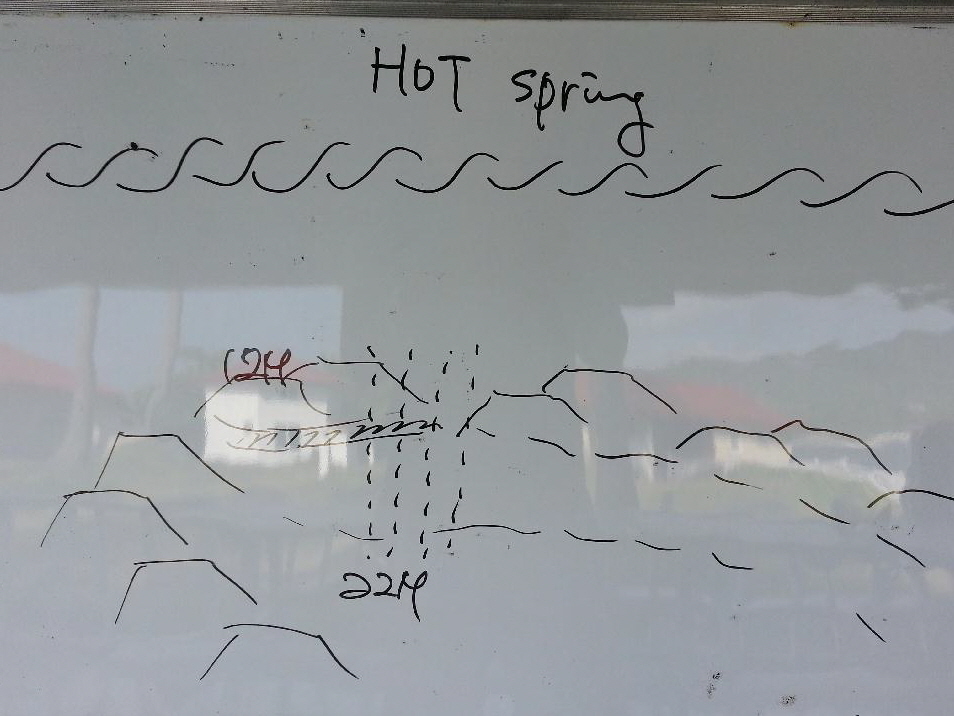 HOT spring
12M
22M